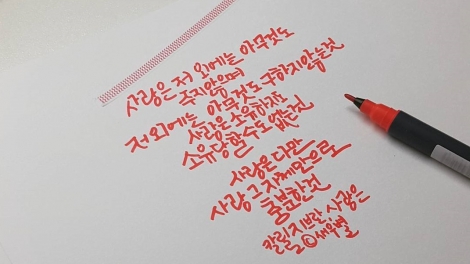 사랑은 저 외에는 아무것도
주지않으며
저외에는 아무것도 구하지않는것
사랑은 소유하지도
소유당할수도 없는것
사랑은 다만
사랑 그 자체만으로
충분한것
칼릴지브란 사랑은